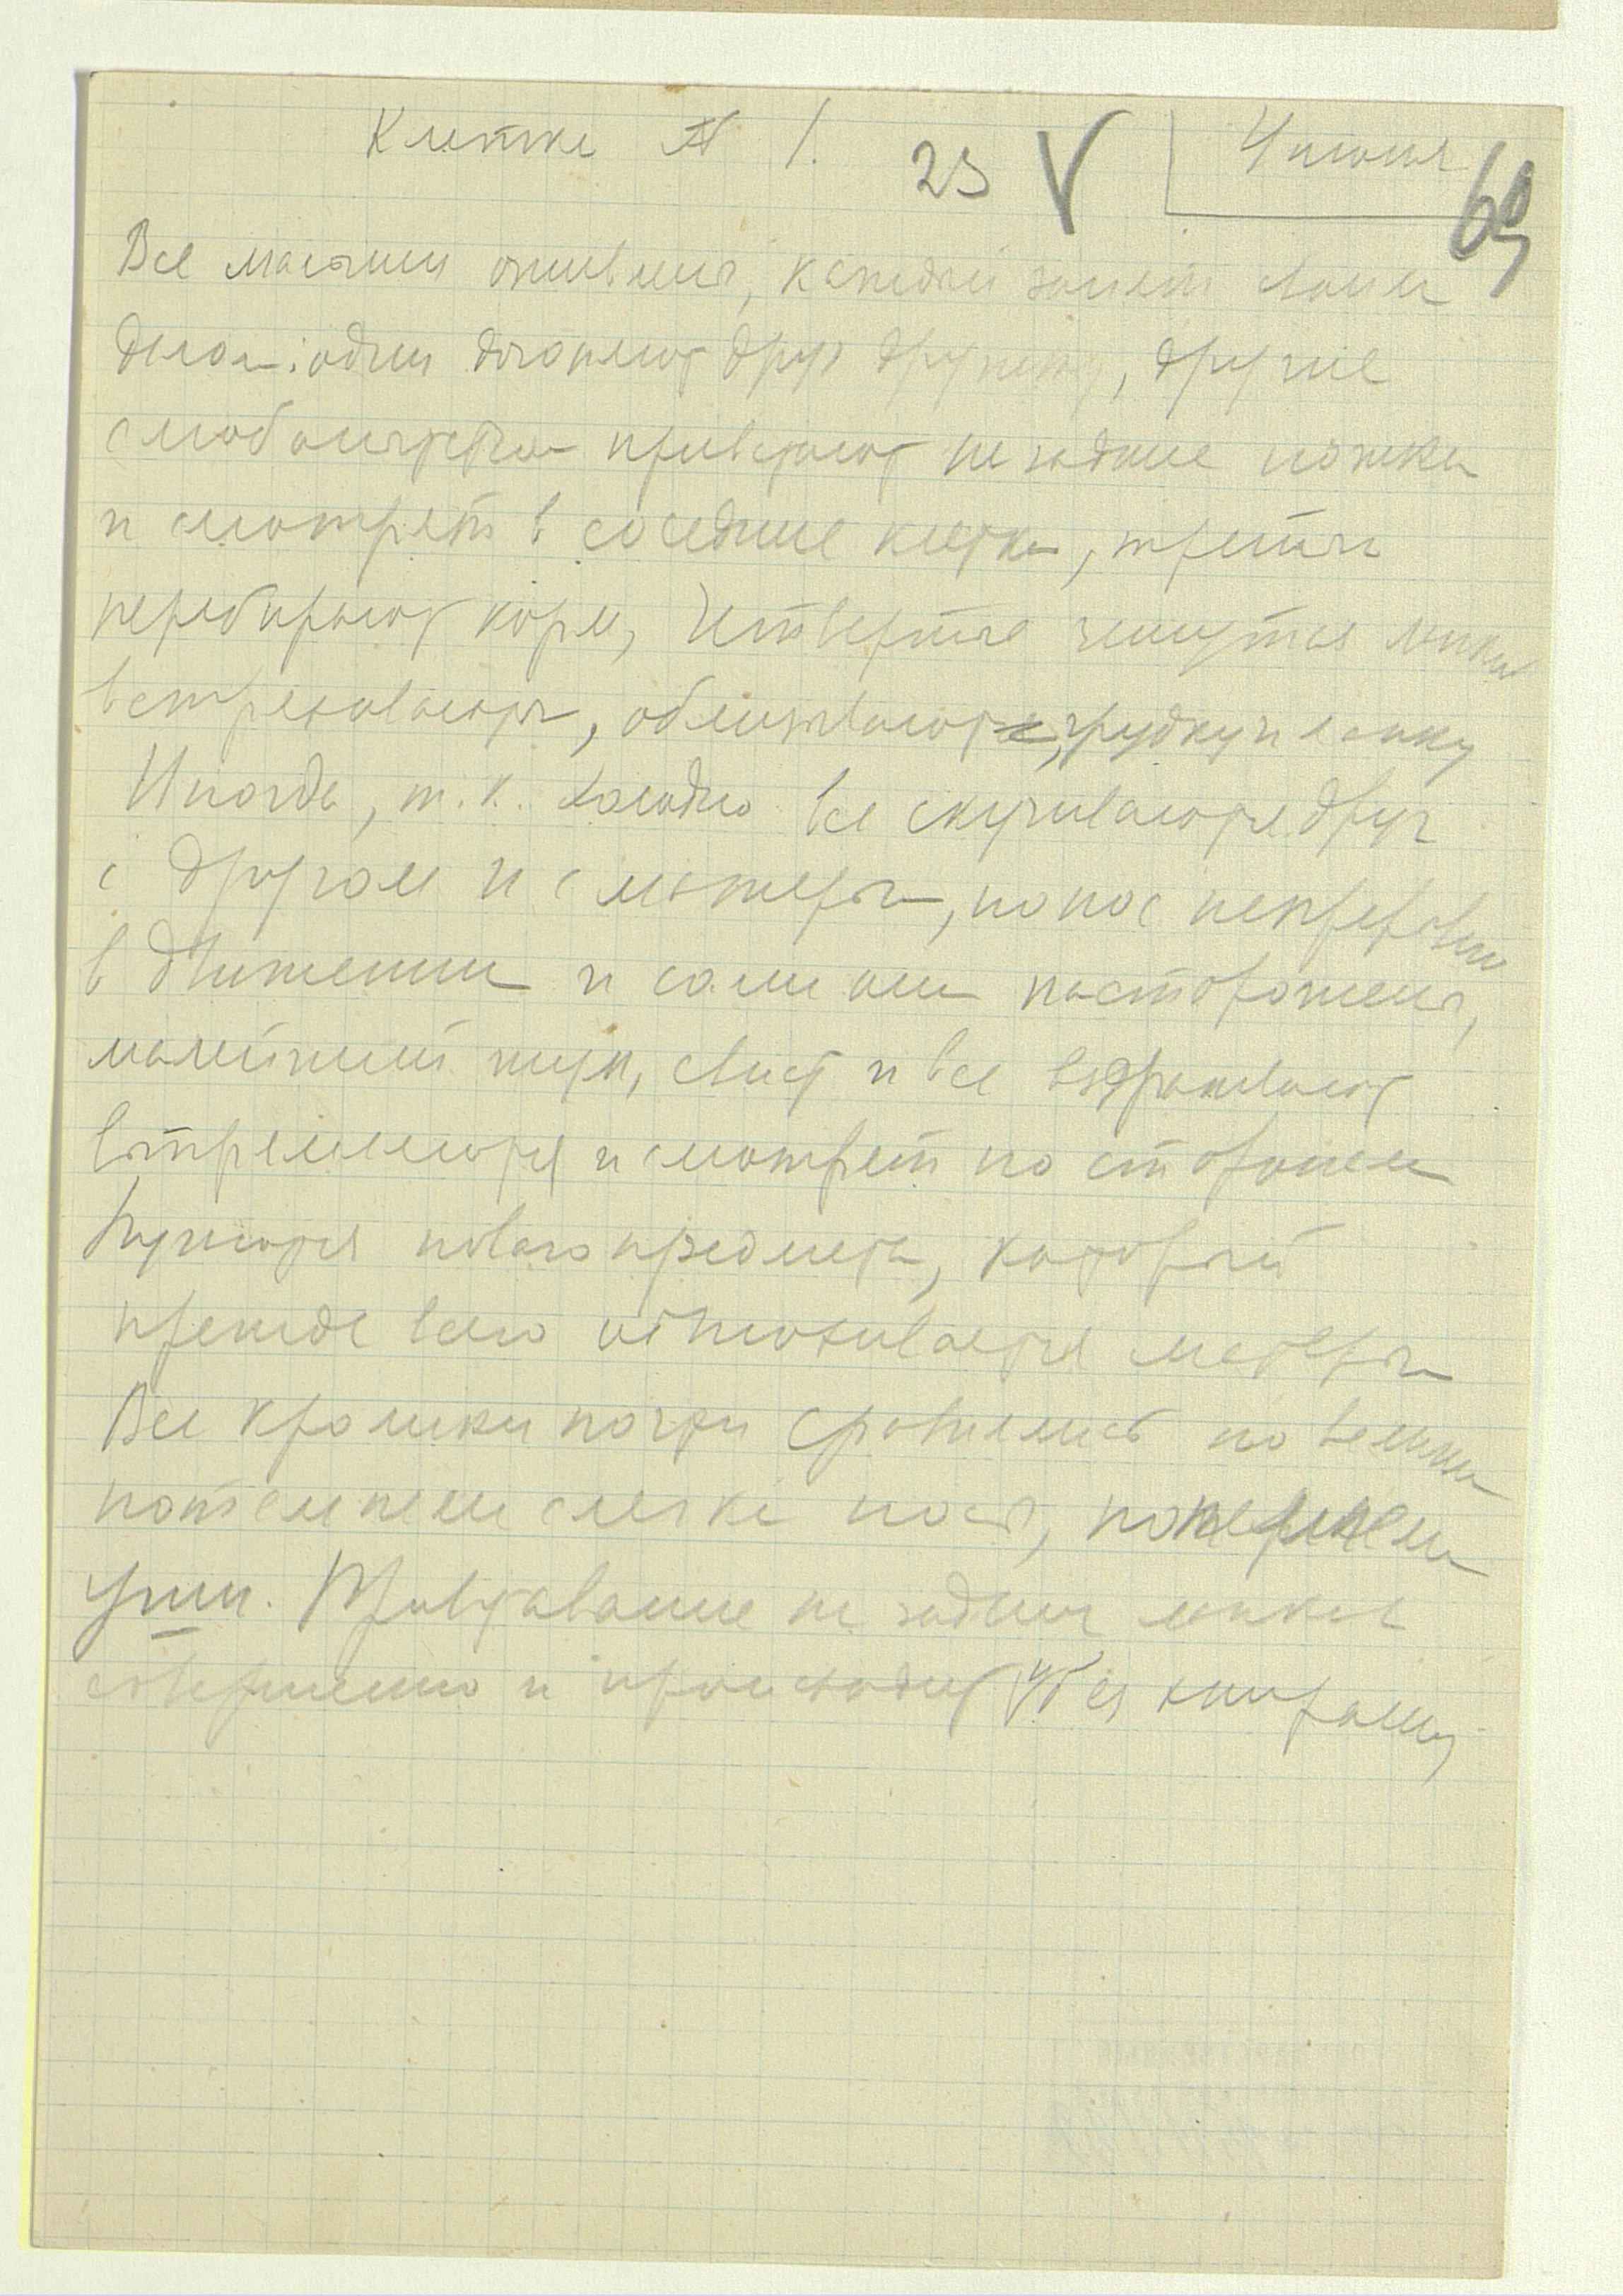 Клетка № 1. 23 V 4 июня 69
Все малыши оживлены, каждый занят своим
делом: одни догоняют друг дружку, другие
с любопытством привстают на задние ножки
и смотрят в соседние клетки, третьи
перебирают корм, четвертые чешутся лапками
встряхиваются, облизывают грудку и спинку
Иногда, т.к. холодно все скучиваются друг
с другом и с матерью, но нос непрерывно
в движении и сами они насторожены,
малейший шум, свист и все вздрагивают
встрепенутся и смотрят по сторонам
Пугаются нового предмета, который
прежде всего обнюхивается матерью
Все кролики почти сровнялись по величине
потемнели слегка носы,
уши. Привставание на задних лапках
совершенно и происходит без опоры